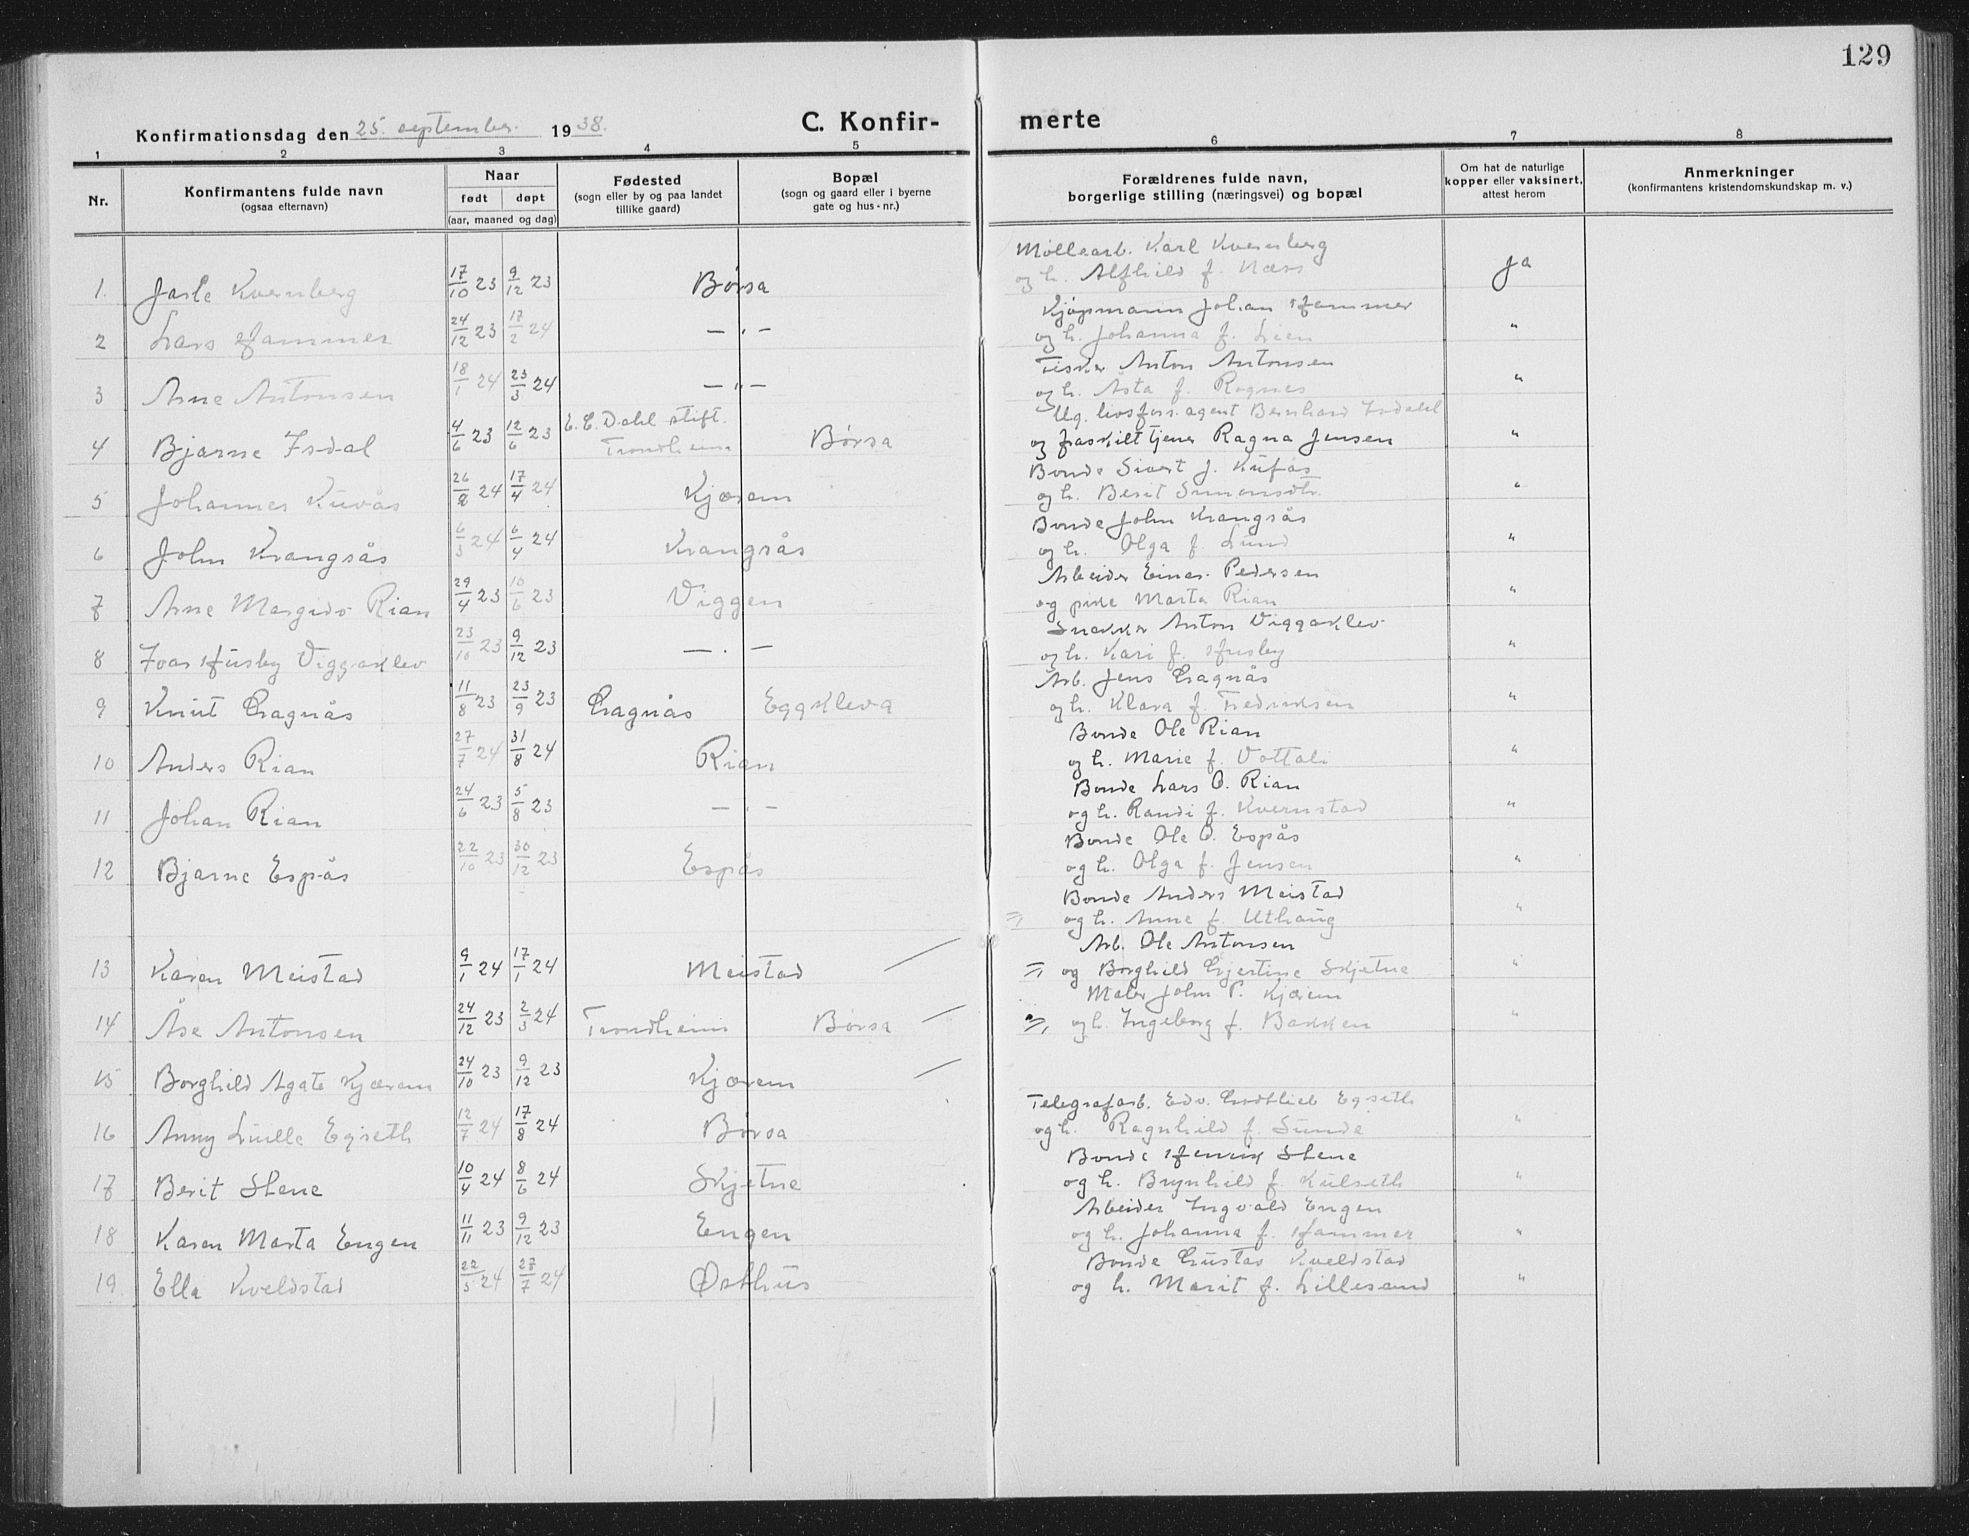 129
Konfirmationsdag den 25. september. 1938.
C. Konfir-
merte
1 2 3 4 5 6 7 8
Nr.
Konfirmantens fulde navn
(ogsaa efternavn)
Naar
født døpt
(aar, maaned og dag)
Fødested
(sogn eller by og paa landet
tillike gaard)
Bopæl
(sogn og gaard eller i byerne
gate og hus-nr.)
Forældrenes fulde navn,
borgerlige stilling (næringsvei) og bopæl
Om hat de naturlige
kopper eller vaksinert,
attest herom
Anmerkninger
(konfirmantens kristendomskundskap m. v.)
Møllearb. Karl Kvernberg
1. Jarle Kvernberg 17/10 23 9/12 23 Børsa og h. Alfhild f. Næss ja
Kjøpmann Johan Hammer
2 Lars Hammer 24/12 23 17/2 24 — „ — og h. Johanna f. Lien "
Fisker Anton Antonsen
3 Arne Antonsen 18/1 24 23/3 24 — „ — og h. Åsta f. Rognes "
Ug. livsfors. agent Bernhard Isdahl
4 Bjarne Isdal 4/6 23 12/6 23 E. C. Dahl stift. Trondheim Børsa og fraskilt tjener Ragna Jensen "
Bonde Sivert J. Kufås
5 Johannes Kuvås 26/2 24 17/4 24 Kjærem og h. Berit Simonsdtr. "
Bonde John Krangsås
6 John Krangsås 6/3 24 6/4 24 Krangsås og h. Olga f. Lund "
Arbeider Einar Pedersen
7 Arne Margido Rian 29/4 23 10/6 23 Viggen og pike Marta Rian "
Snekker Anton Viggaklev
8 Ivar Husby Viggaklev 23/10 23 9/12 23 — . — og h. Kari f. Husby "
Arb. Jens Gragnås
9 Knut Gragnås 11/8 23 23/9 23 Gragnås Eggkleva og h. Klara f. Fredriksen "
Bonde Ole Rian
10 Anders Rian 27/7 24 31/8 24 Rian og h. Marie f. Vottali "
Bonde Lars O. Rian
11 Johan Rian 24/6 23 5/8 23 — . — og h. Randi f. Kvernstad "
Bonde Ole O. Espås
12 Bjarne Espås 22/10 23 30/12 23 Espås og h. Olga f. Jensen "
Bonde Anders Meistad
og h. Anne f. Uthaug "
Arb. Ole Antonsen
13 Karen Meistad 9/1 24 17/1 24 Meistad og Borghild Gjertine Skjetne "
Maler John P. Kjærem
14 Åse Antonsen 24/12 23 2/3 24 Trondheim Børsa og h. Ingeborg f. Bakken "
15 Borghild Agate Kjærem 24/10 23 9/12 23 Kjærem
Telegrafarb. Edv. Gottlieb Egseth
16 Anny Lielle Egseth 12/7 24 17/8 24 Børsa og h. Ragnhild f. Sunde "
Bonde Henrik Stene
17 Berit Stene 10/4 24 8/6 24 Skjetne og h. Brynhild f. Kulseth "
Arbeider Ingvald Engen
18 Karen Marta Engen 11/11 23 9/12 23 Engen og h. Johanna f. Hammer "
Bonde Gustav Kveldstad
19 Ella Kveldstad 22/5 24 27/7 24 Østhus og h. Marit f. Lillesand "